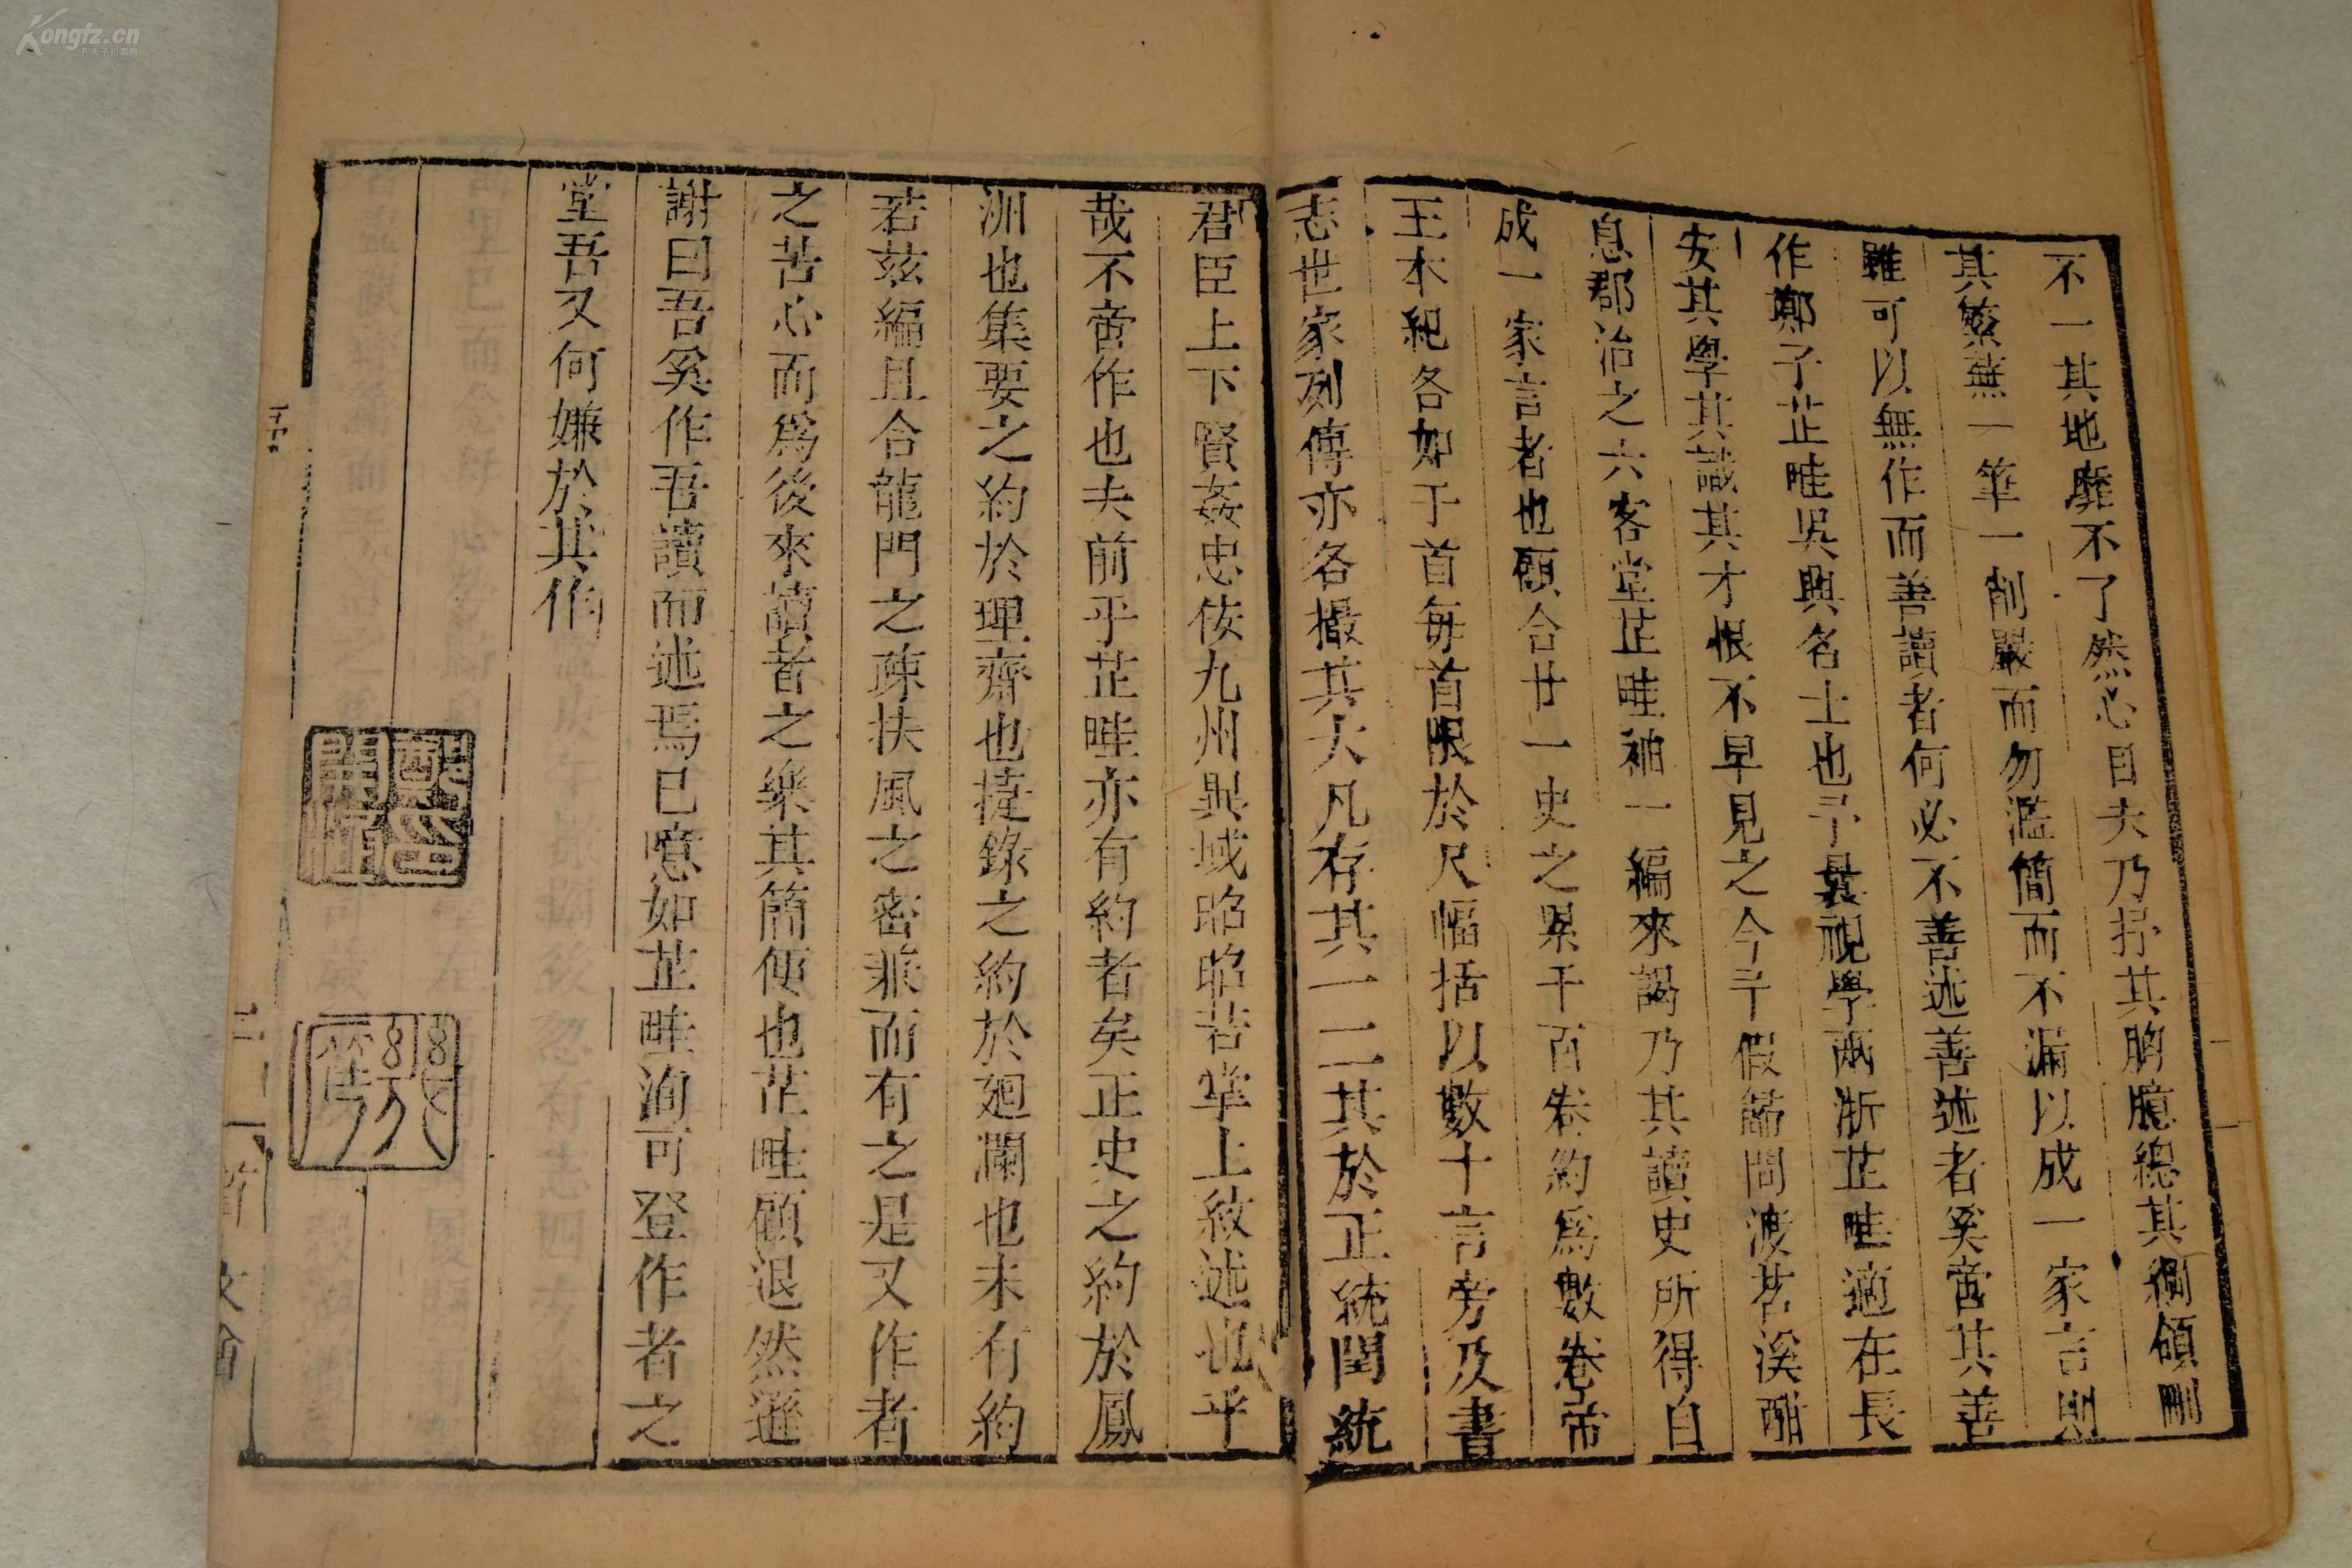 不一其地靡不了然心目夫乃抒其胸臆總其綱領刪
其繁蕪一筆一削嚴而勿濫簡而不漏以成一家言則
雖可以無作而善讀者何必不善述善述者奚啻其善
作鄭子芷畦吳興名士也予曩視學兩浙芷畦適在長
安其學其識其才恨不早見之今予假節問渡苕溪
息郡治之六客堂芷畦袖一編來謁乃其讀史所得自
成一家言者也顧合廿一史之累千百卷約爲數卷帝
王本紀各如干首每首限於尺幅括以數十言旁及書
志世家列傳亦各撮其大凡存其一二其於正統閏統
君臣上下賢姦忠佞九州異域昭昭若掌上紋述也乎
哉不啻作也夫前乎芷畦亦有約者矣正史之約於鳳
洲也集要之約於理齋也捷錄之約於廻瀾也未有約
若茲編且合龍門之疎扶風之密兼而有之是又作者
之苦心而爲後來讀者之樂其簡便也芷畦顧退然遜
謝曰吾奚作吾讀而述焉已噫如芷畦洵可登作者之
堂吾又何嫌於其作
Kongfz.cn